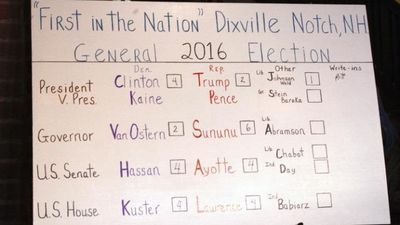 "First in the Nation" Dixville Notch, NH
General 2016 Election
Dem. Rep. Other Write-ins
President Clinton 4 Trump 2 Lib Johnson 1
V. Pres. Kaine Pence Weld
Gr. Stein
Baraka
Governor Van Ostern 2 Sununu 6 Lib Abramson
Lib Chabot
U.S. Senate Hassan 4 Ayotte 4 Ind Day
U.S. House Kuster 4 Lawrence 4 Ind Babiarz